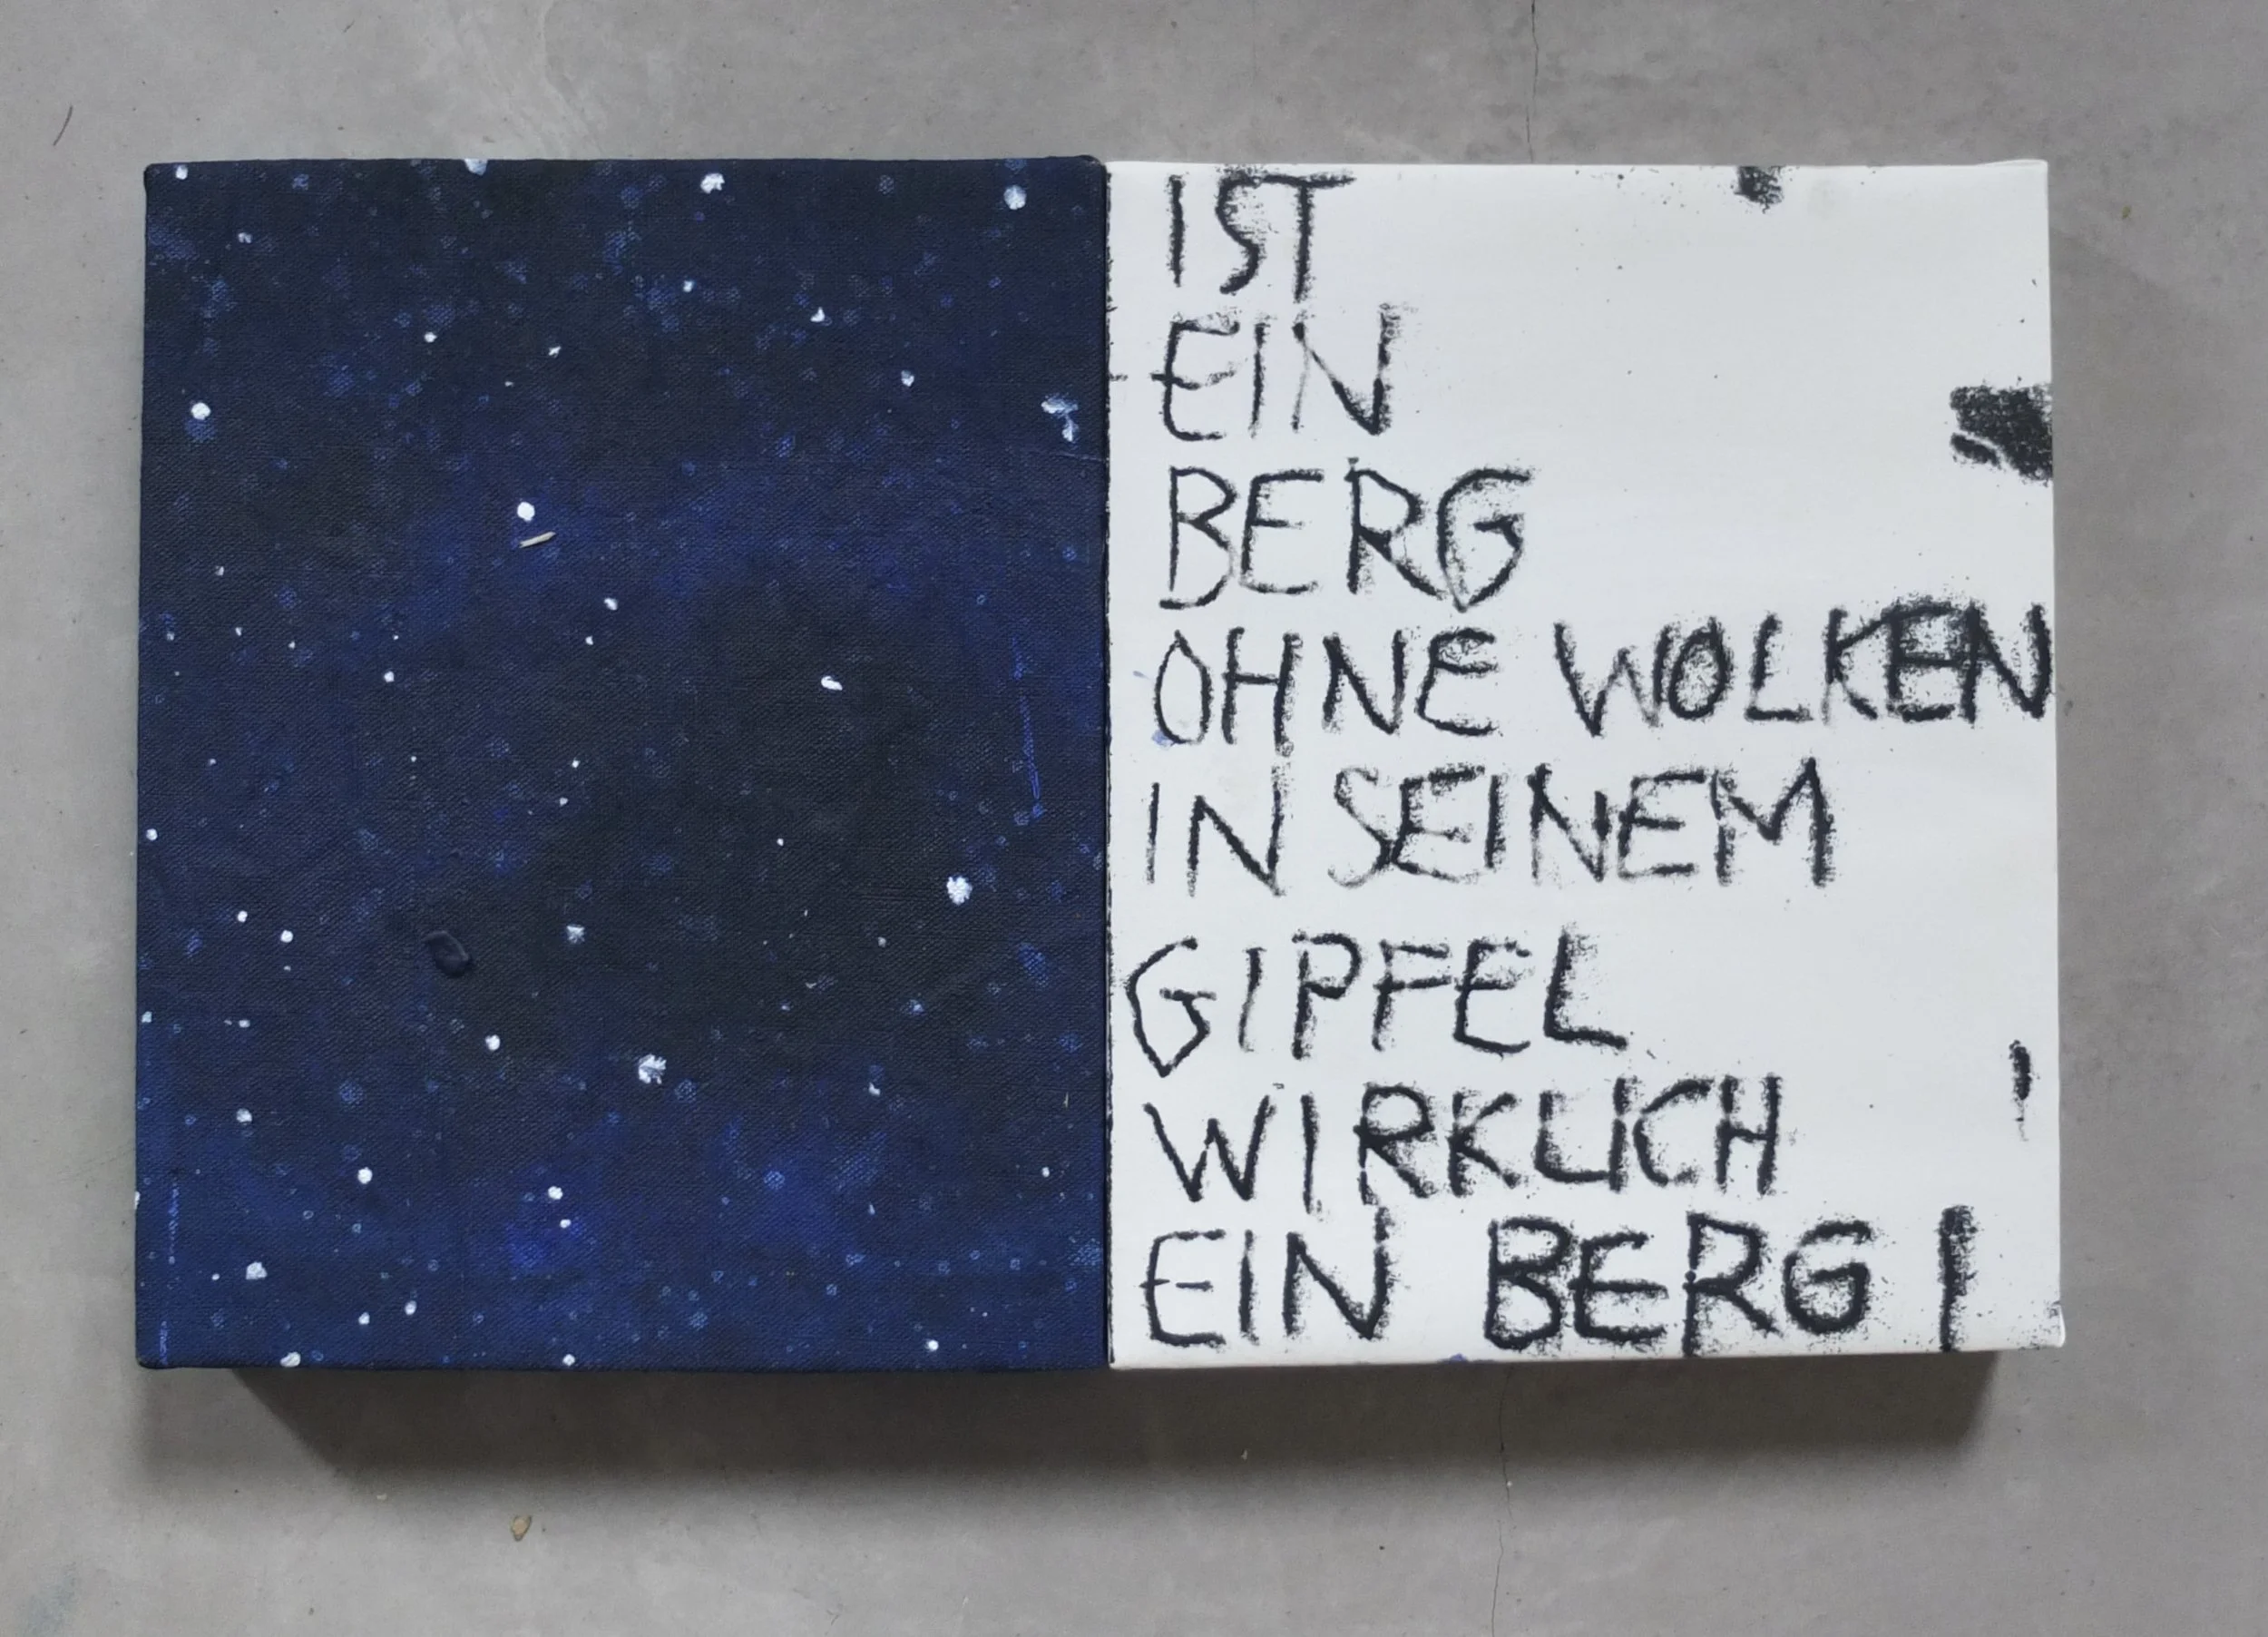 IST
EIN
BERG
OHNE WOLKEN
IN SEINEM
GIPFEL
WIRKLICH
EIN BERG !